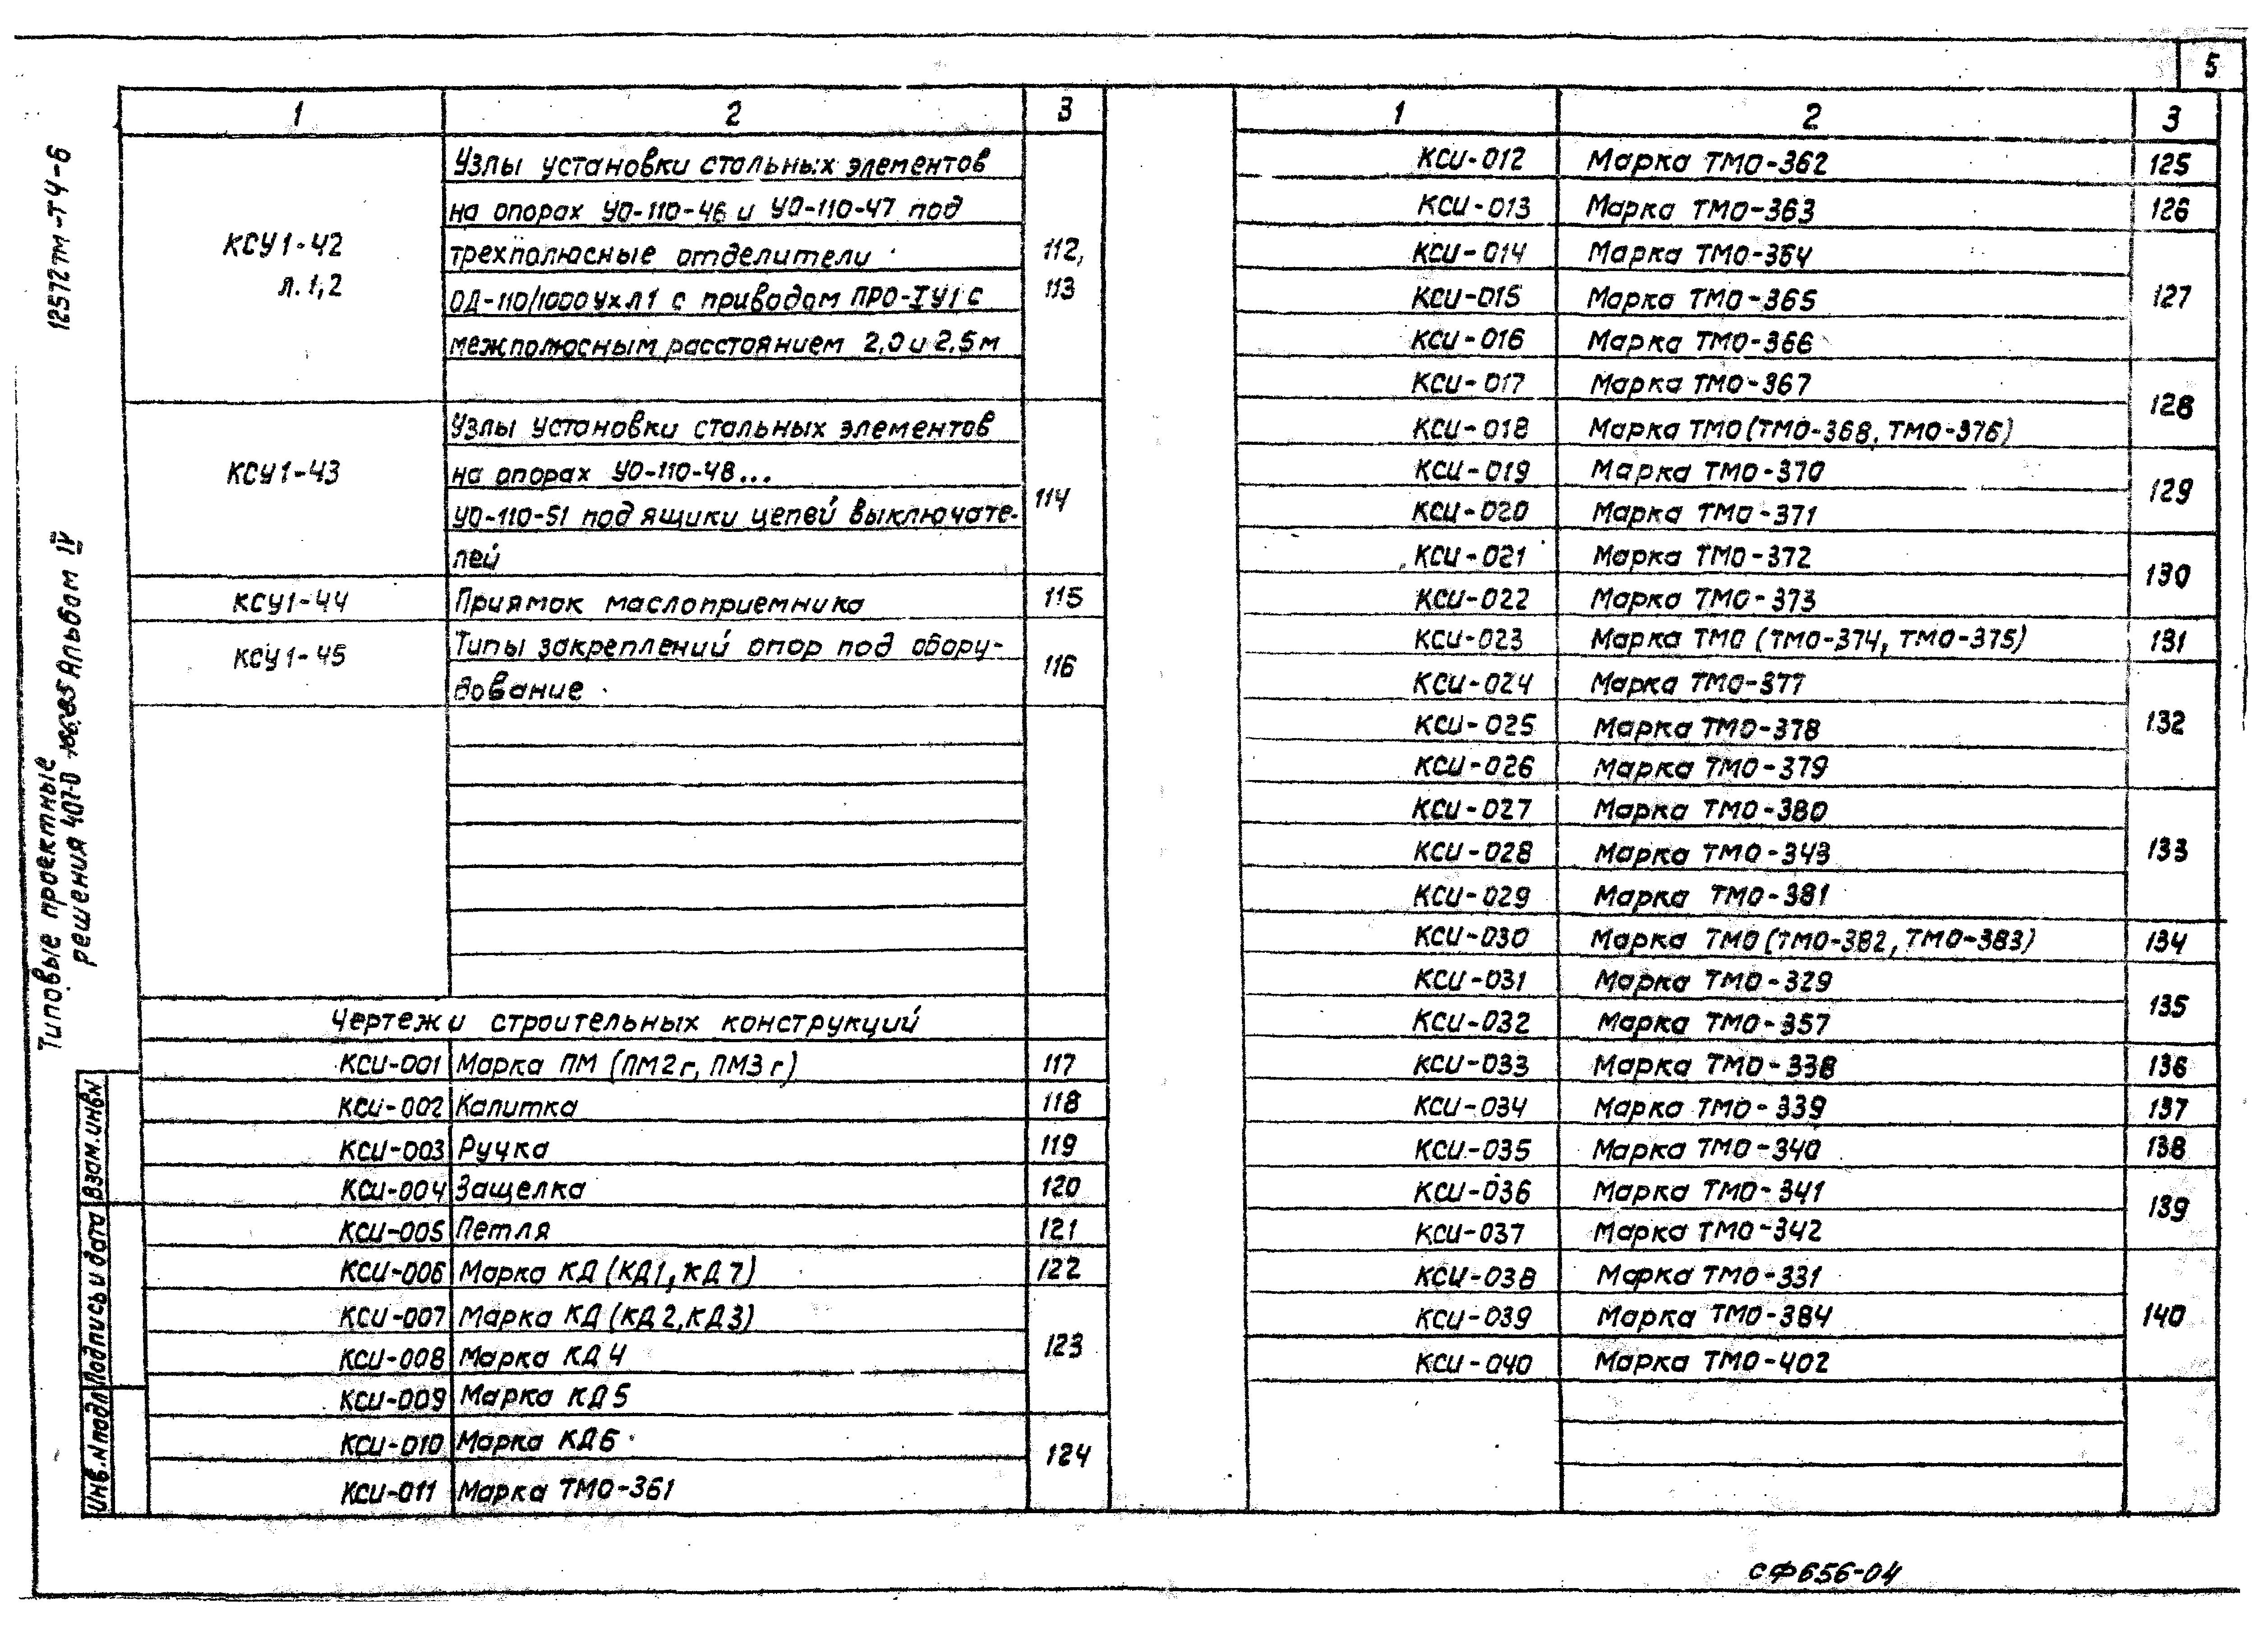 5
1 2 3
КСУ1-42
л.1,2
Узлы установки стальных элементов
на опорах УО-110-46 и УО-110-47 под
трехполюсные отделители
ОД-110/1000 УХЛ1 с приводом ПРО-IУ1 с
межполюсным расстоянием 2,0 и 2,5 м
112,
113
КСУ1-43
Узлы установки стальных элементов
на опорах УО-110-48...
УО-110-51 под ящики цепей выключате-
лей
114
КСУ1-44 Приямок маслоприемника 115
КСУ1-45 Типы закреплений опор под обору-
дование
116
Чертежи строительных конструкций
КСИ-001 Марка ПМ (ПМ2г, ПМ3г) 117
КСИ-002 Калитка 118
КСИ-003 Ручка 119
КСИ-004 Защелка 120
КСИ-005 Петля 121
КСИ-006 Марка КД (КД1, КД7) 122
КСИ-007 Марка КД (КД2, КД3)
КСИ-008 Марка КД4 123
КСИ-009 Марка КД5
КСИ-010 Марка КД6 124
КСИ-011 Марка ТМО-361
1 2 3
КСИ-012 Марка ТМО-362 125
КСИ-013 Марка ТМО-363 126
КСИ-014 Марка ТМО-364
КСИ-015 Марка ТМО-365 127
КСИ-016 Марка ТМО-366
КСИ-017 Марка ТМО-367 128
КСИ-018 Марка ТМО (ТМО-368, ТМО-376)
КСИ-019 Марка ТМО-370 129
КСИ-020 Марка ТМО-371
КСИ-021 Марка ТМО-372 130
КСИ-022 Марка ТМО-373
КСИ-023 Марка ТМО (ТМО-374, ТМО-375) 131
КСИ-024 Марка ТМО-377
КСИ-025 Марка ТМО-378 132
КСИ-026 Марка ТМО-379
КСИ-027 Марка ТМО-380
КСИ-028 Марка ТМО-343 133
КСИ-029 Марка ТМО-381
КСИ-030 Марка ТМО (ТМО-382, ТМО-383) 134
КСИ-031 Марка ТМО-329 135
КСИ-032 Марка ТМО-357
КСИ-033 Марка ТМО-338 136
КСИ-034 Марка ТМО-339 137
КСИ-035 Марка ТМО-340 138
КСИ-036 Марка ТМО-341 139
КСИ-037 Марка ТМО-342
КСИ-038 Марка ТМО-331
КСИ-039 Марка ТМО-384 140
КСИ-040 Марка ТМО-402
12572тм-Т4-6
Типовые проектные
решения 407-0 Альбом IV
Взам.инвN
Подпись и дата
Инв.Nподл
СФ656-04